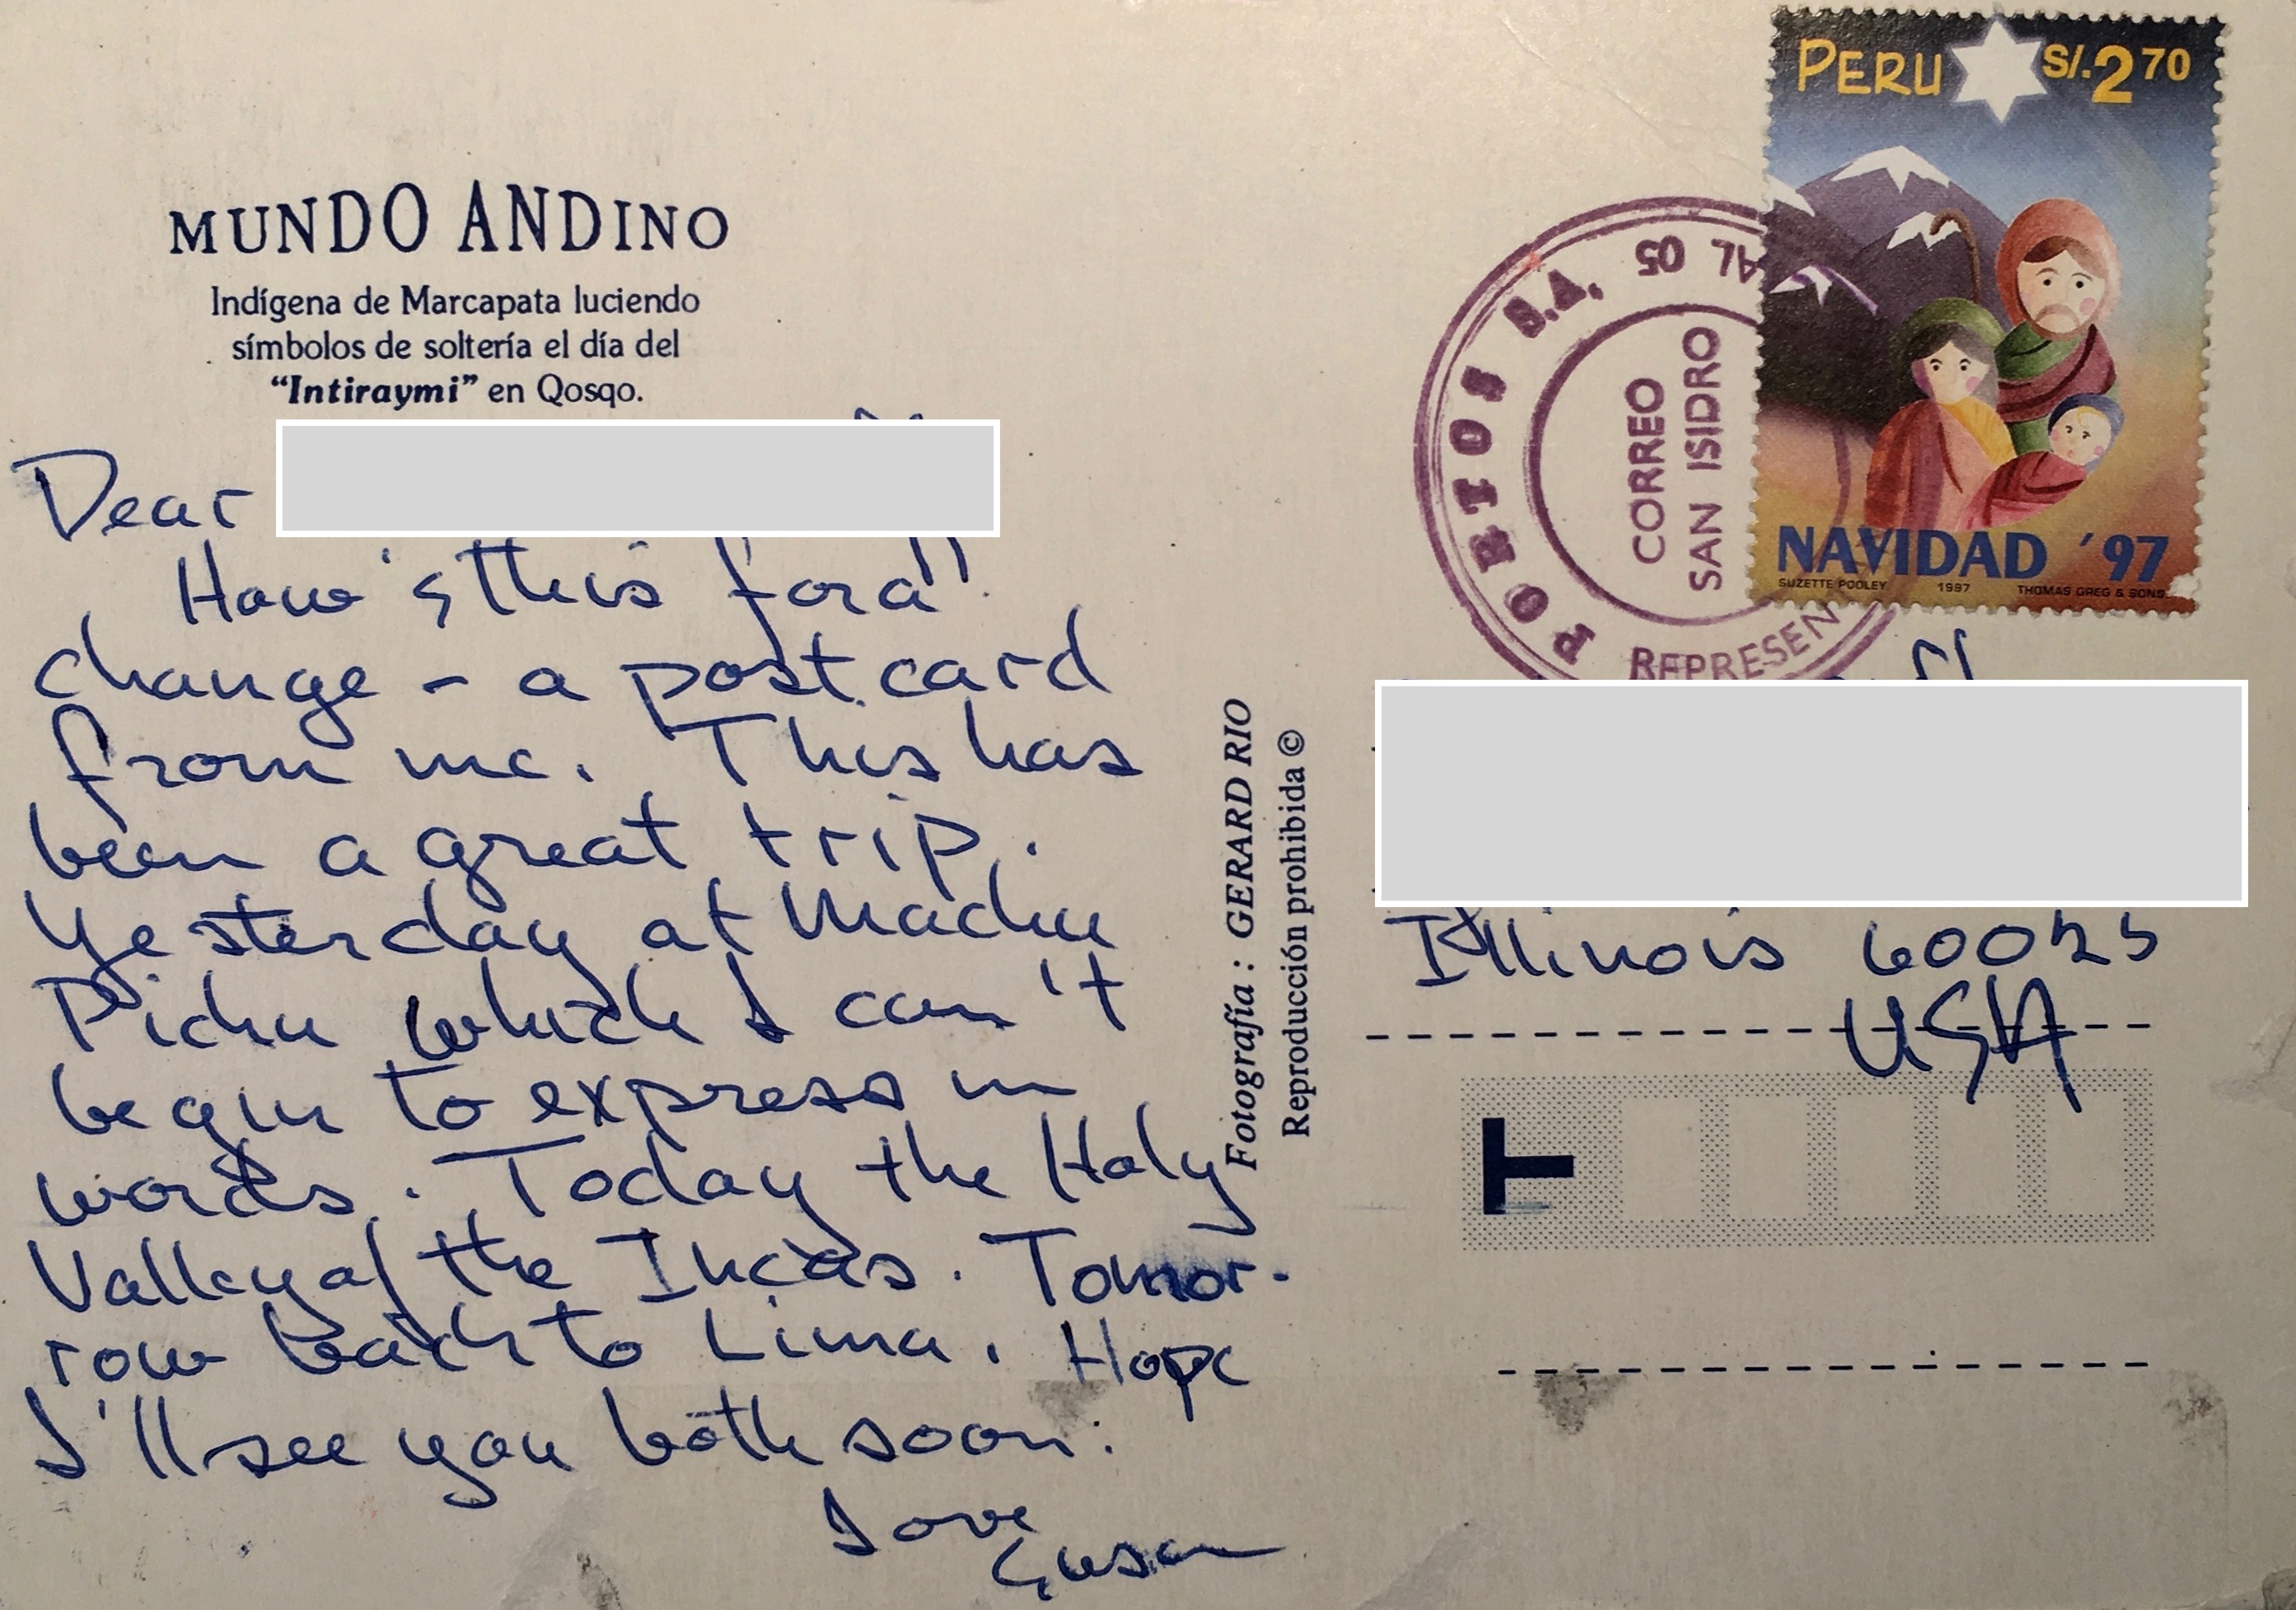 MUNDO ANDINO
Indígena de Marcapata luciendo
símbolos de soltería el día del
"Intiraymi" en Qosqo.
Dear
How's this for a
change - a postcard
from me. This has
been a great trip.
Yesterday at Machu
Pichu which I can't
begin to express in
words. Today the Holy
Valley of the Incas. Tomor-
row back to Lima. Hope
I'll see you both soon.
Love
Susan
Fotografía : GERARD RIO
Reproducción prohibida ©
PERU S/.2 70
NAVIDAD '97
SUZETTE POOLEY 1997 THOMAS GREG & SONS
PORTOS S.A.
05
CORREO
SAN ISIDRO
Illinois 60025
USA
T